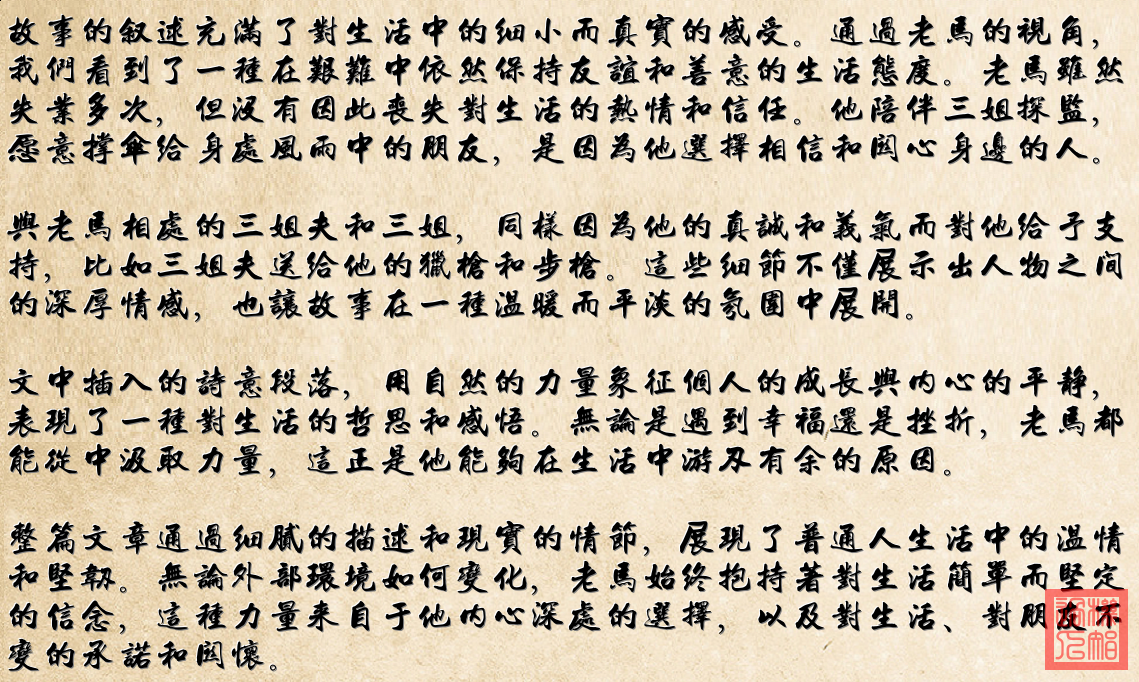 故事的叙述充滿了對生活中的細小而真實的感受。通過老馬的視角，
我們看到了一種在艱難中依然保持友誼和善意的生活態度。老馬雖然
失業多次，但沒有因此喪失對生活的熱情和信任。他陪伴三姐探監，
愿意撑傘給身處風雨中的朋友，是因為他選擇相信和関心身邊的人。
與老馬相處的三姐夫和三姐，同樣因為他的真誠和義氣而對他給予支
持，比如三姐夫送給他的獵槍和步槍。這些細節不僅展示出人物之间
的深厚情感，也讓故事在一種温暖而平淡的氛圍中展開。
文中插入的詩意段落，用自然的力量象征個人的成長與内心的平静，
表現了一種對生活的哲思和感悟。無論是遇到幸福還是挫折，老馬都
能從中汲取力量，這正是他能夠在生活中游刃有余的原因。
整篇文章通過細膩的描述和現實的情節，展現了普通人生活中的温情
和堅韌。無論外部環境如何變化，老馬始終抱持著對生活簡單而堅定
的信念，這種力量来自于他内心深處的選擇，以及對生活、對朋友不
變的承諾和関懷。